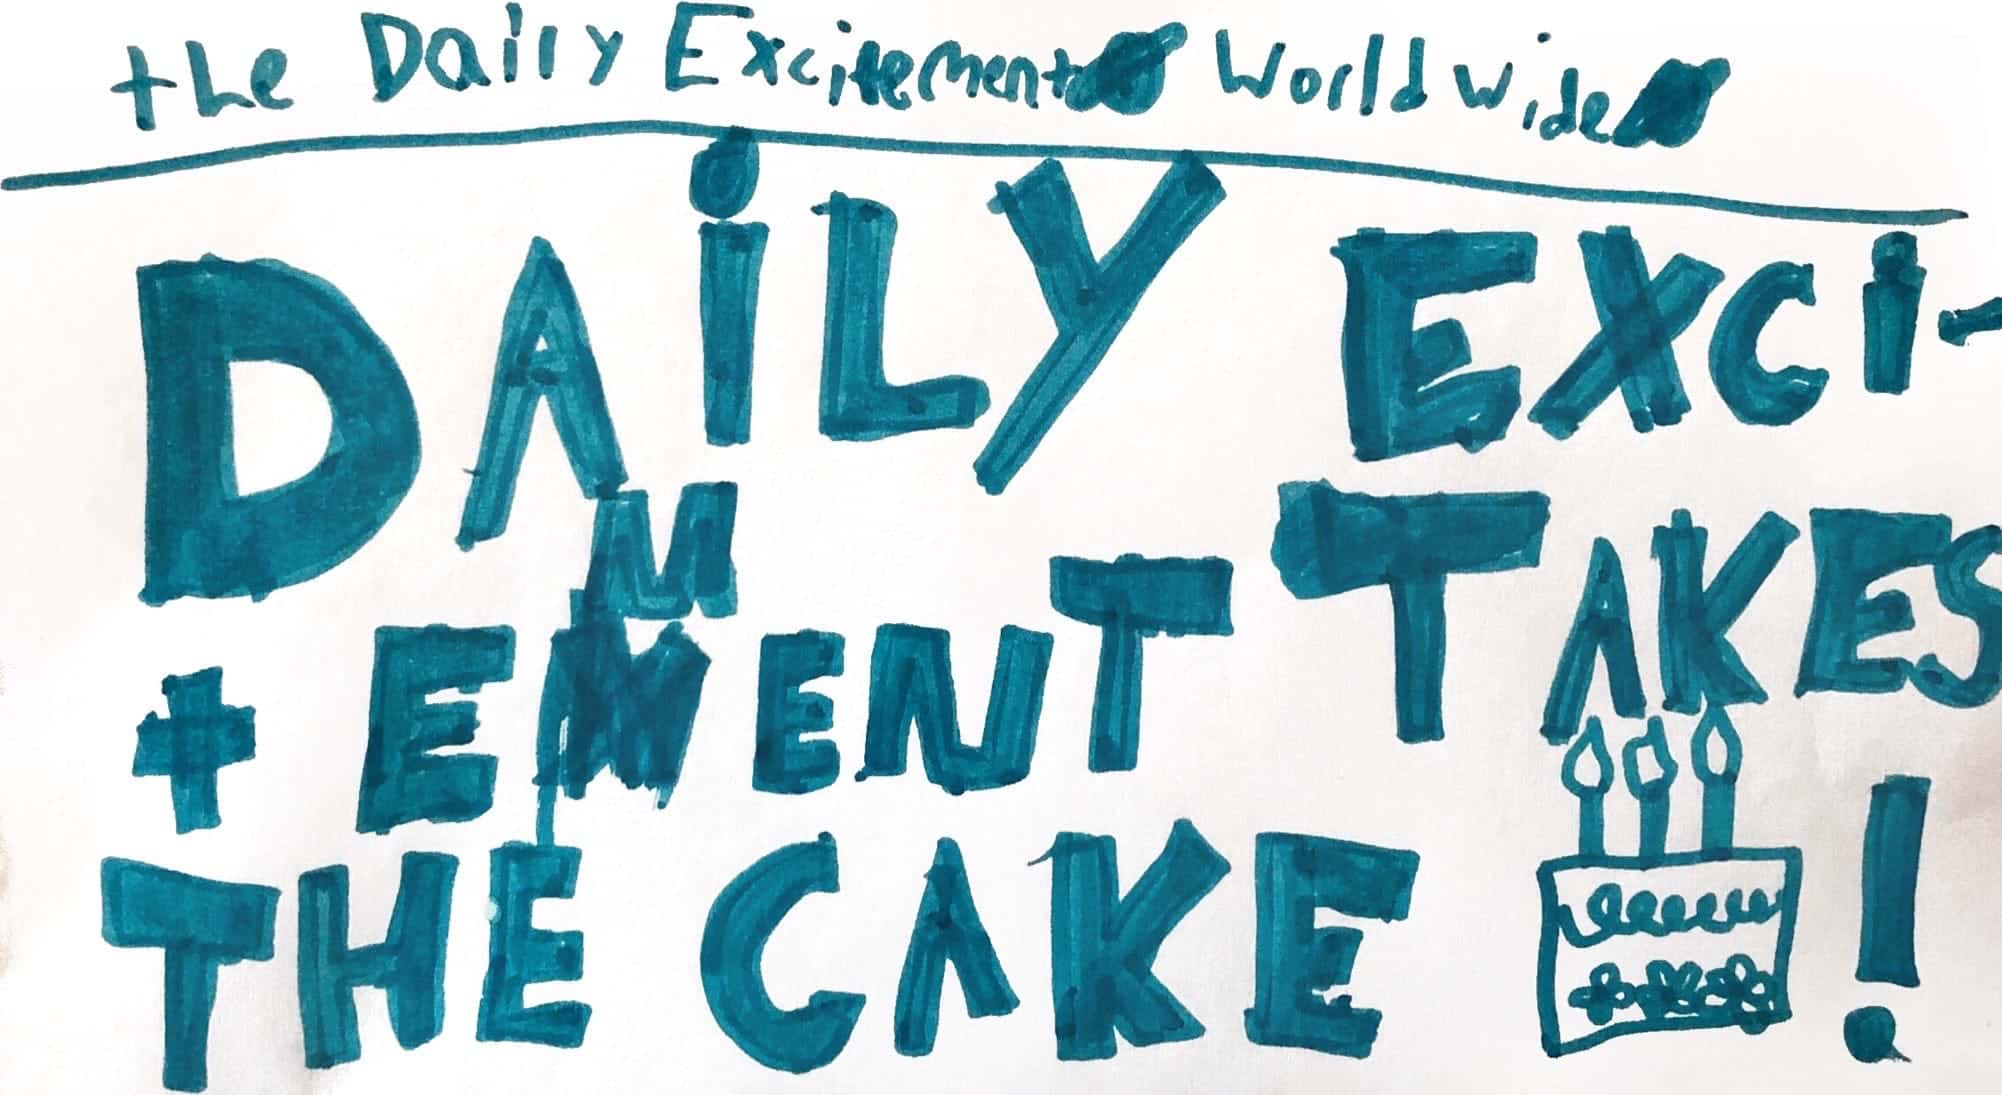 the Daily Excitement Worldwide
DAiLY EXCi-
tEMENT TAKES
THE CAKE !